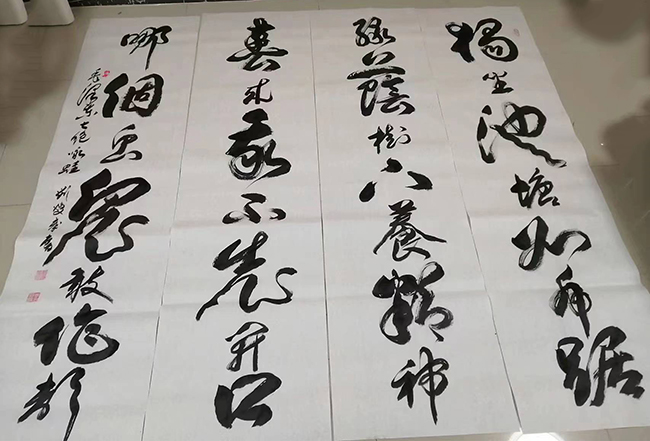 獨坐池塘如虎踞
綠蔭樹下養精神
春来我不先开口
哪個虫兒敢作聲
毛澤东七絕咏蛙 劉 書